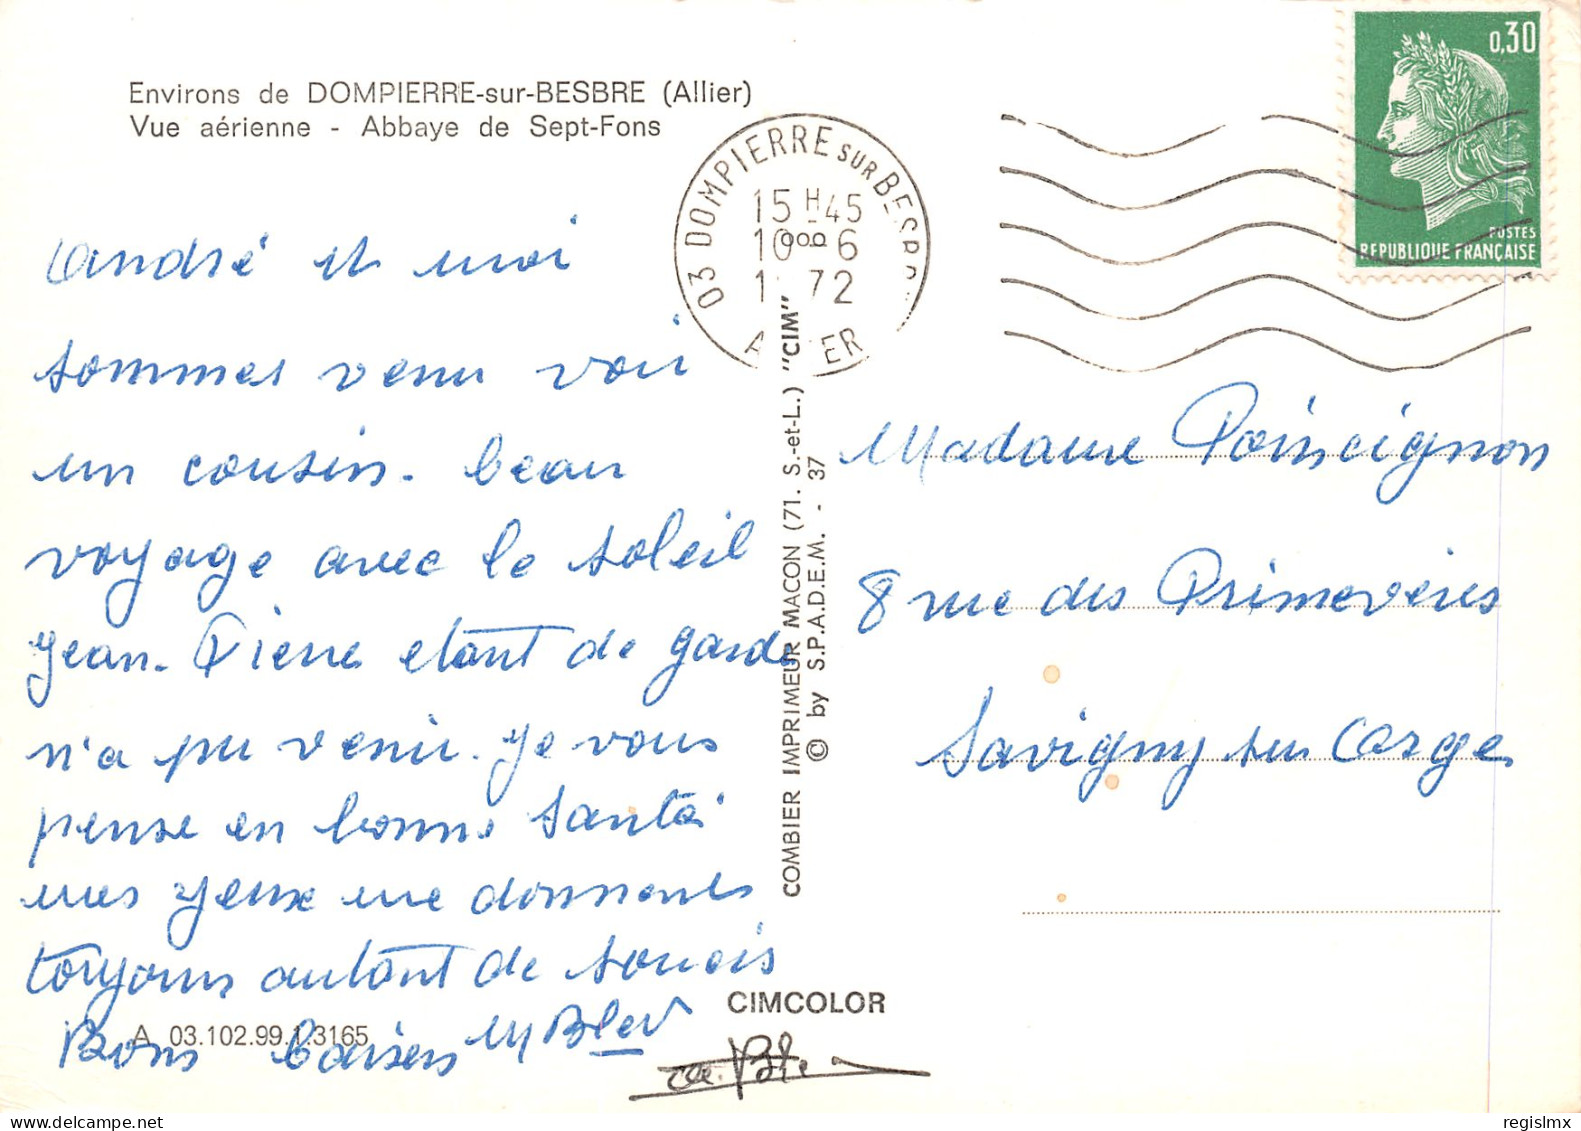 Environs de DOMPIERRE-sur-BESBRE (Allier)
Vue aérienne - Abbaye de Sept-Fons
0,30
POSTES
REPUBLIQUE FRANÇAISE
03 DOMPIERRE SUR BESBRE
15 H 45
10 6
1 72
A ER
André et moi
sommes venu voir
un cousin. beau
voyage avec le soleil
Jean-Pierre etant de garde
n'a pu venir. Je vous
pense en bonne santé.
mes yeux me donnent
toujours autant de soucis
Bons baisers
Madame Poinsignon
8 rue des Primevères
Savigny sur Orge
COMBIER IMPRIMEUR MACON (71. S.-et-L.) "CIM"
© by S.P.A.D.E.M. - 37
A 03.102.99.1.3165
CIMCOLOR
regislmx